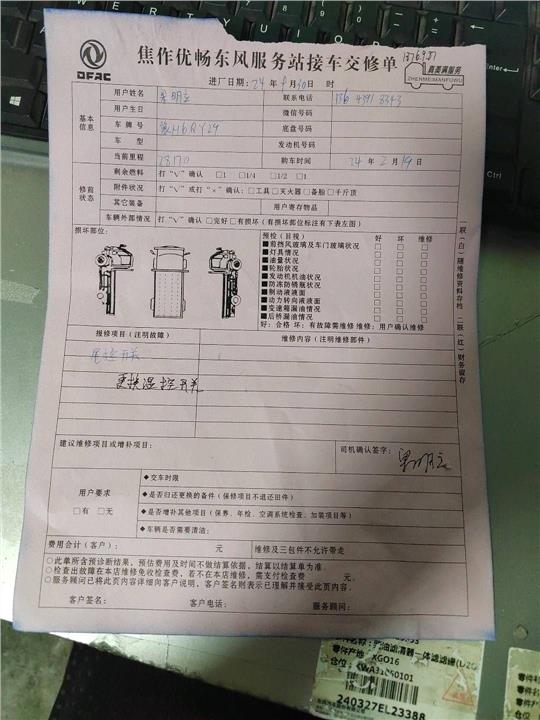 DFAC
焦作优畅东风服务站接车交修单
真美满服务
ZHENMEIMANFUWU
进厂日期：24 年 9 月 30 日 时
基本信息
用户姓名
联系电话
用户生日
微信号码
车牌号 豫H6QY29
底盘号码
车型
发动机号码
当前里程 28170
购车时间 24 年 2 月 19 日
修前状态
剩余燃料 打“√”确认 □1 □1/4 □1/2 □1
附件状况 打“√”或打“×”确认：□工具 □灭火器 □备胎 □千斤顶
其它装备
用户寄存物品
车辆外部情况 打“√”确认 □完好 □有损坏（有损坏部位标注有下表左图）
损坏部位：
预检（目视） 好 坏 维修
■前挡风玻璃及车门玻璃状况 □ □ □
■灯具情况 □ □ □
■油量状况 □ □ □
■轮胎状况 □ □ □
■发动机机油状况 □ □ □
■防冻防锈瓶状况 □ □ □
■制动液液面 □ □ □
■动力转向液液面 □ □ □
■变速箱漏油情况 □ □ □
■后桥漏油情况 □ □ □
好：合格 坏：有故障需维修 维修：用户确认维修
报修项目（注明故障）
维修内容（注明维修部件）
更换温控开关
建议维修项目或增补项目：
司机确认签字：
用户要求
□有 □无
◆交车时限
◆是否归还更换的备件（保修项目不退还旧件）
◆是否增补其他项目（保养、年检、空调系统检查、加装项目等）
◆车辆是否需要清洁：
费用合计（客户）： 元
维修及三包件不允许带走
○此单所含预诊断结果，预估费用及时间不做结算依据，结算以结算单为准．
○检查出故障在本店维修免收检查费，若不在本店维修，需支付检查费 元．
○服务顾问已将此页内容详细向客户说明，客户签名则表示已理解并接受此页内容．
客户签名： 客户电话： 服务顾问：
一联（白）随维修资料存档 二联（红）财务留存
零件产地： XGO16
240327EL23388
Ctrl